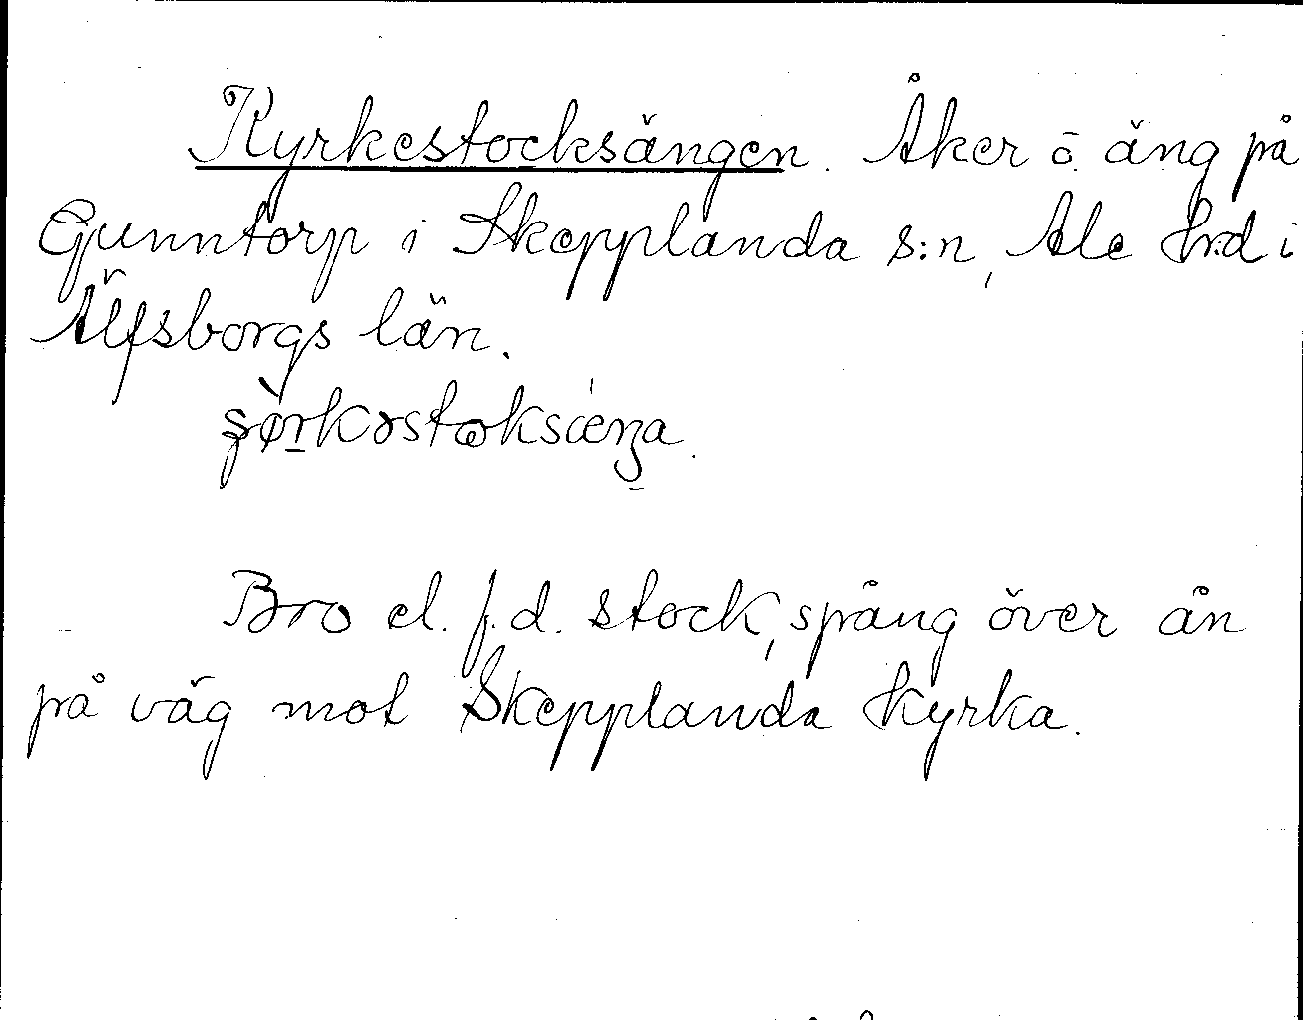 Kyrkestocksängen. Åker ō äng på
Gunntorp i Skepplanda s:n, Ale hrd i
Älfsborgs län.
Bro el. f.d. stock, spång över ån
på väg mot Skepplanda kyrka.